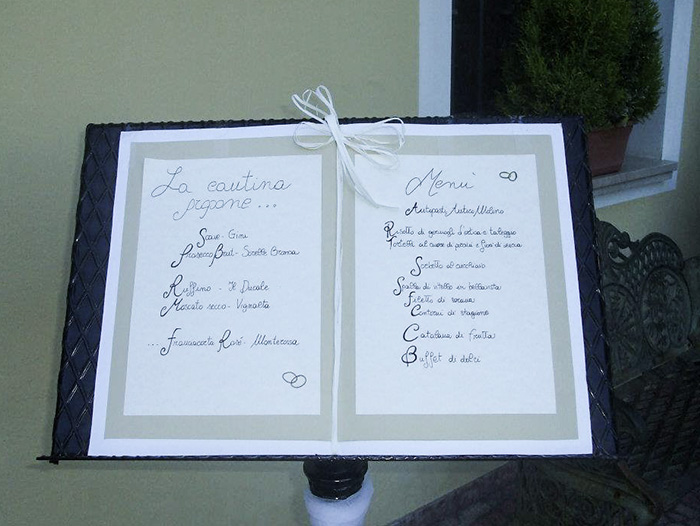 La cantina
propone ...
Soave - Gini
Prosecco Brut - Sorelle Bronca
Ruffino - Il Ducale
Moscato secco - Vignalta
... Franciacorta Rosé - Monterossa
Menù
Antipasti Antico Molino
Risotto di germogli d'ortica e taleggio
Tortelli al cuore di e fiori di zucca
Sorbetto al cucchiaio
Spalla di vitello in bellavista
Filetto di
Contorni di stagione
Catalana di frutta
Buffet di dolci